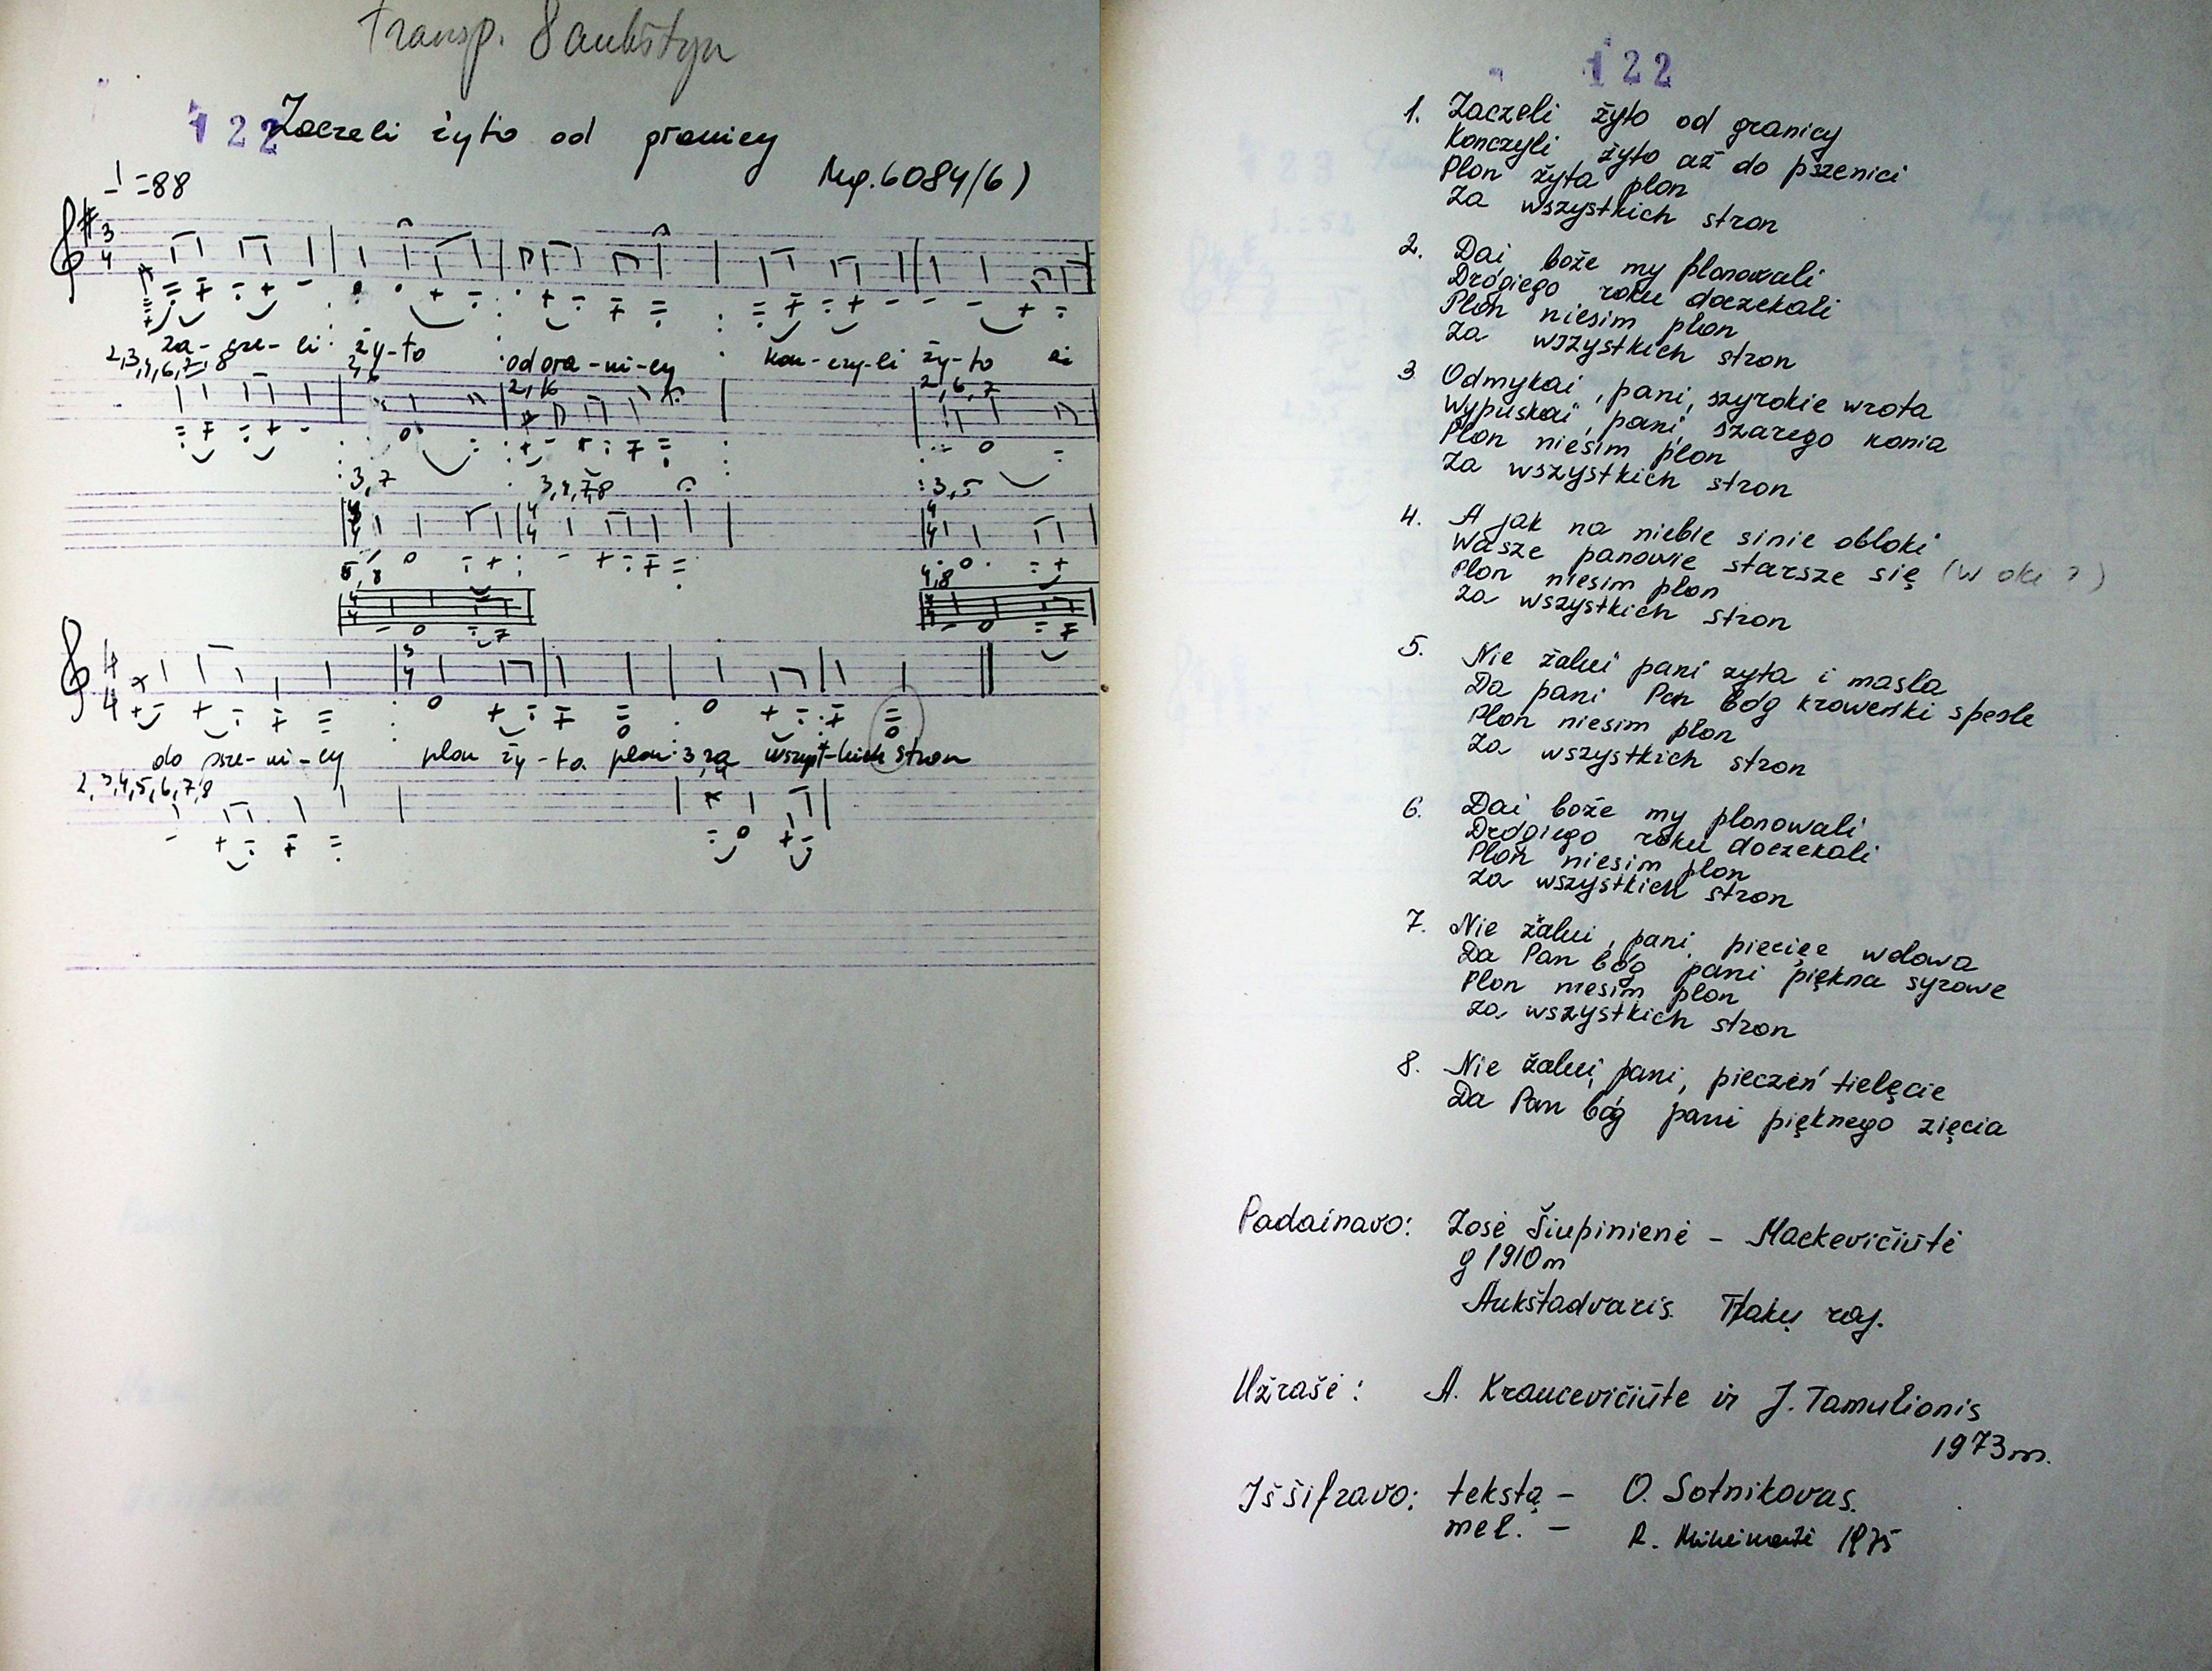 Transp. 8 aukštyn
122
Zaczeli żyto od granicy
Mg. 6084/6)
♩=88
3
4
za- cze- li ży-to od gra-ni-cy kon-czy-li ży-to aż
2,3,4,6,7,8
2,6
2,6,7
3,7
3,4,7,8
3,5
5,8
4,8
do psze-ni-cy plon ży-ta plon za wszyst-kich stron
2,3,4,5,6,7,8
122
1. Zaczeli žyto od granicy
Konczyli žyto až do pszenici
Plon žyta plon
Za wszystkich stron
2. Dai bože my plonowali
Drógiego roku doczekali
Plon niesim plon
Za wszystkich stron
3 Odmykai, pani, szyrokie wrota
Wypuskai, pani, szarego konia
Plon niesim plon
Za wszystkich stron
4. A jak na niebie sinie obloki
Wasze panowie starsze się (w oki ?)
Plon niesim plon
Za wszystkich stron
5. Nie žalui pani zyta i masla
Da pani Pan Bóg kroweńki spasle
Plon niesim plon
Za wszystkich stron
6. Dai bože my plonowali
Drógiego roku doczekali
Plon niesim plon
Za wszystkich stron
7. Nie žalui, pani, piecięe wolowa
Da Pan bóg pani piękna syrowe
Plon niesim plon
Za wszystkich stron
8. Nie žalui, pani, pieczeń tielęcie
Da Pan bóg pani pięknego zięcia
Padainavo: Zosė Šiupinienė - Mackevičiūtė
g 1910 m
Aukštadvaris Trakų raj.
Užrašė: A. Kraucevičiūte ir J. Tamulionis
1973 m.
Iššifravo: tekstą - O. Sotnikovas.
mel. - R. 1975